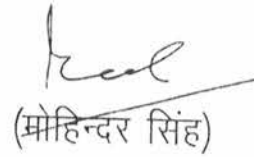 (मोहिन्दर सिंह)